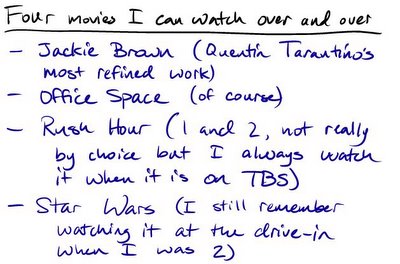 Four movies I can watch over and over
- Jackie Brown (Quentin Tarantino's
most refined work)
- Office Space (of course)
- Rush Hour (1 and 2, not really
by choice but I always watch
it when it is on TBS)
- Star Wars (I still remember
watching it at the drive-in
when I was 2)